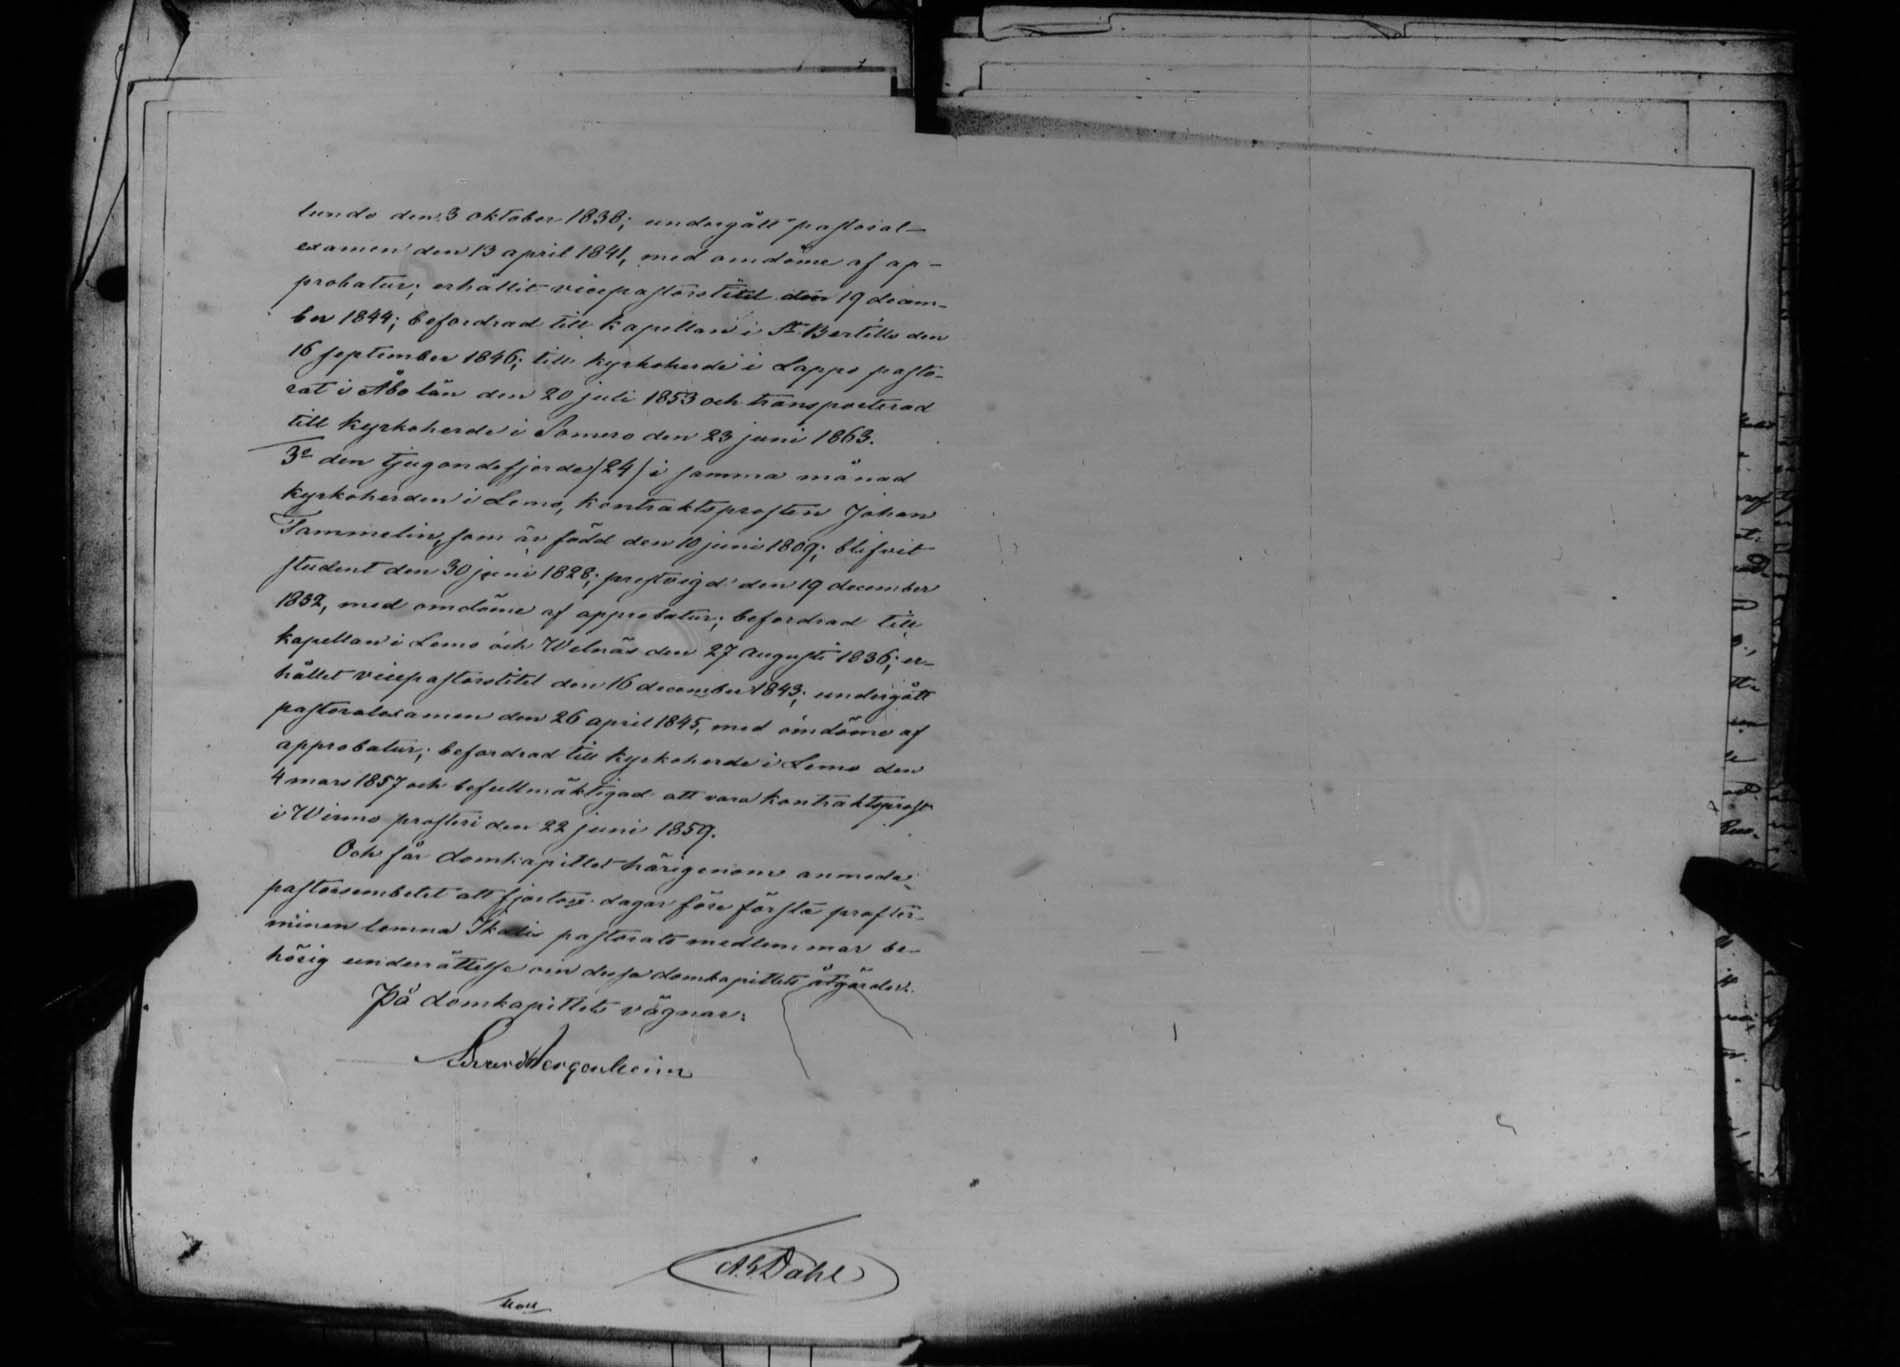 lunda den 3 oktober 1838; undergått pastoral-
examen den 13 april 1841, med omdöme af ap-
probatur; erhållit vicepastorstitel den 19 decem-
ber 1844; befordrad till kapellan i St Bertils den
16 september 1846; till kyrkoherde i Lappo pasto-
rat i Åbo län den 20 juli 1853 och transporterad
till kyrkoherde i Somero den 23 juni 1863.
3o den tjugondefjerde /24/ i samma månad
kyrkoherden i Lemo, kontraktsprosten Johan
Tammelin, som är född den 10 juni 1809; blifvit
student den 30 juni 1828; prestvigd den 19 december
1832, med omdöme af approbatur; befordrad till
kapellan i Lemo och Velnäs den 27 augusti 1836; er-
hållet vicepastorstitel den 16 december 1843; undergått
pastoralexamen den 26 april 1845, med omdöme af
approbatur; befordrad till kyrkoherde i Lemo den
4 mars 1857 och befullmäktigad att vara kontraktsprost
i Wirmo prosteri den 22 juni 1859.
Och får domkapitlet härigenom anmoda
pastorsembetet att fjorton dagar före första profter-
minen lemna Ikalis pastorats medlemmar be-
hörig underrättelse om dessa domkapitlets åtgärder.
På domkapitlets vägnar:
Edvard Bergenheim
A. E. Dahl